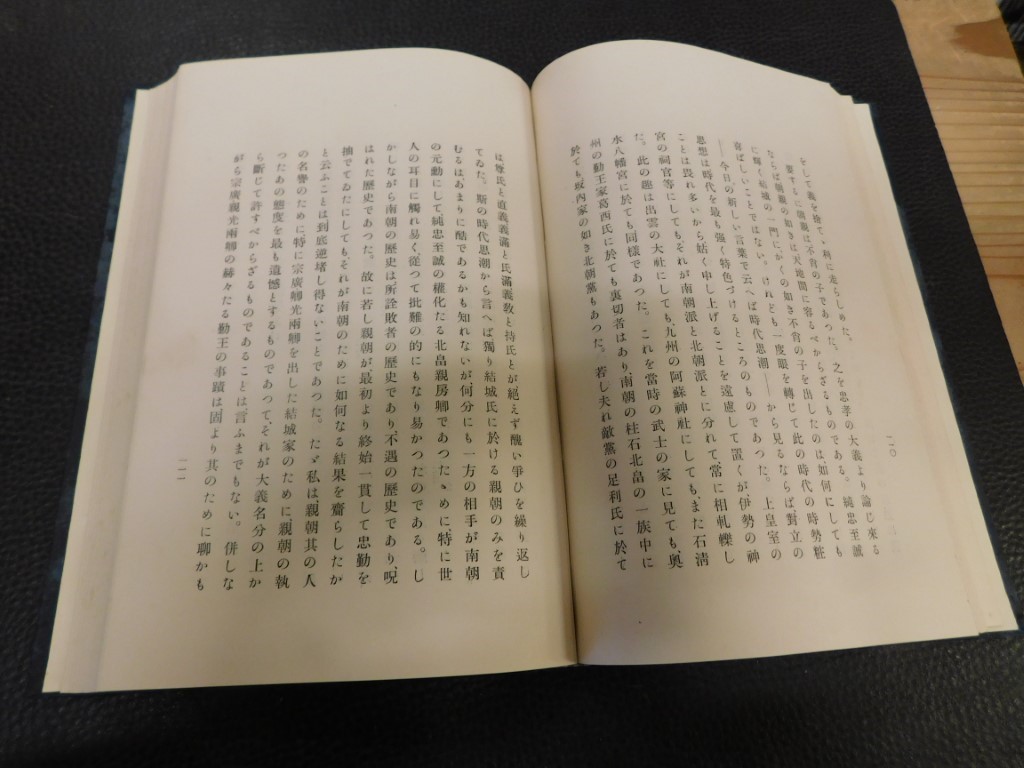 をして義を捨てゝ利に走らしめた。
要するに親朝は不肖の子であつた。之を忠孝の大義より論じ來る
ならば親朝の如きは天地間に容るべからざるものである。純忠至誠
に輝く結城の一門に、かくの如き不肖の子を出したのは如何にしても
喜ばしいことではない。けれども一度眼を轉じて此の時代の時勢粧
――今日の新しい言葉で云へば時代思潮――から見るならば對立の
思想は時代を最も強く特色づけるところのものであつた。上皇室の
ことは畏れ多いから姑く申し上げることを遠慮して置くが、伊勢の神
宮の祠官等にしてもそれが南朝派と北朝派とに分れて常に相軋轢し
た。此の趣は出雲の大社にしても九州の阿蘇神社にしても、また石淸
水八幡宮に於ても同樣であつた。これを當時の武士の家に見ても奥
州の勤王家葛西氏に於ても裏切者はあり、南朝の柱石北畠の一族中に
於ても坂內家の如き北朝黨もあつた。若し夫れ敵黨の足利氏に於て
二〇
は尊氏と直義義滿と氏滿義敎と持氏とが絕えず醜い爭ひを繰り返し
てゐた。斯の時代思潮から言へば獨り結城氏に於ける親朝のみを責
むるはあまりに酷であるかも知れないが、何分にも一方の相手が南朝
の元勳にして、純忠至誠の權化たる北畠親房卿であつたゝめに、特に世
人の耳目に觸れ易く從つて批難の的にもなり易かつたのである。し
かしながら南朝の歷史は所詮敗者の歷史であり不遇の歷史であり、呪
はれた歷史であつた。故に若し親朝が最初より終始一貫して忠勤を
抽でてゐたにしてもそれが南朝のために如何なる結果を齎らしたか
と云ふことは到底逆睹し得ないことであつた。たゞ私は、親朝其の人
の名譽のために特に宗廣卿光兩卿を出した結城家のために親朝の執
つたあの態度を最も遺憾とするものであつて、それが大義名分の上か
ら斷じて許すべからざるものであることは言ふまでもない。併しな
がら宗廣親光兩卿の赫々たる勤王の事蹟は固より其のために聊かも
二一